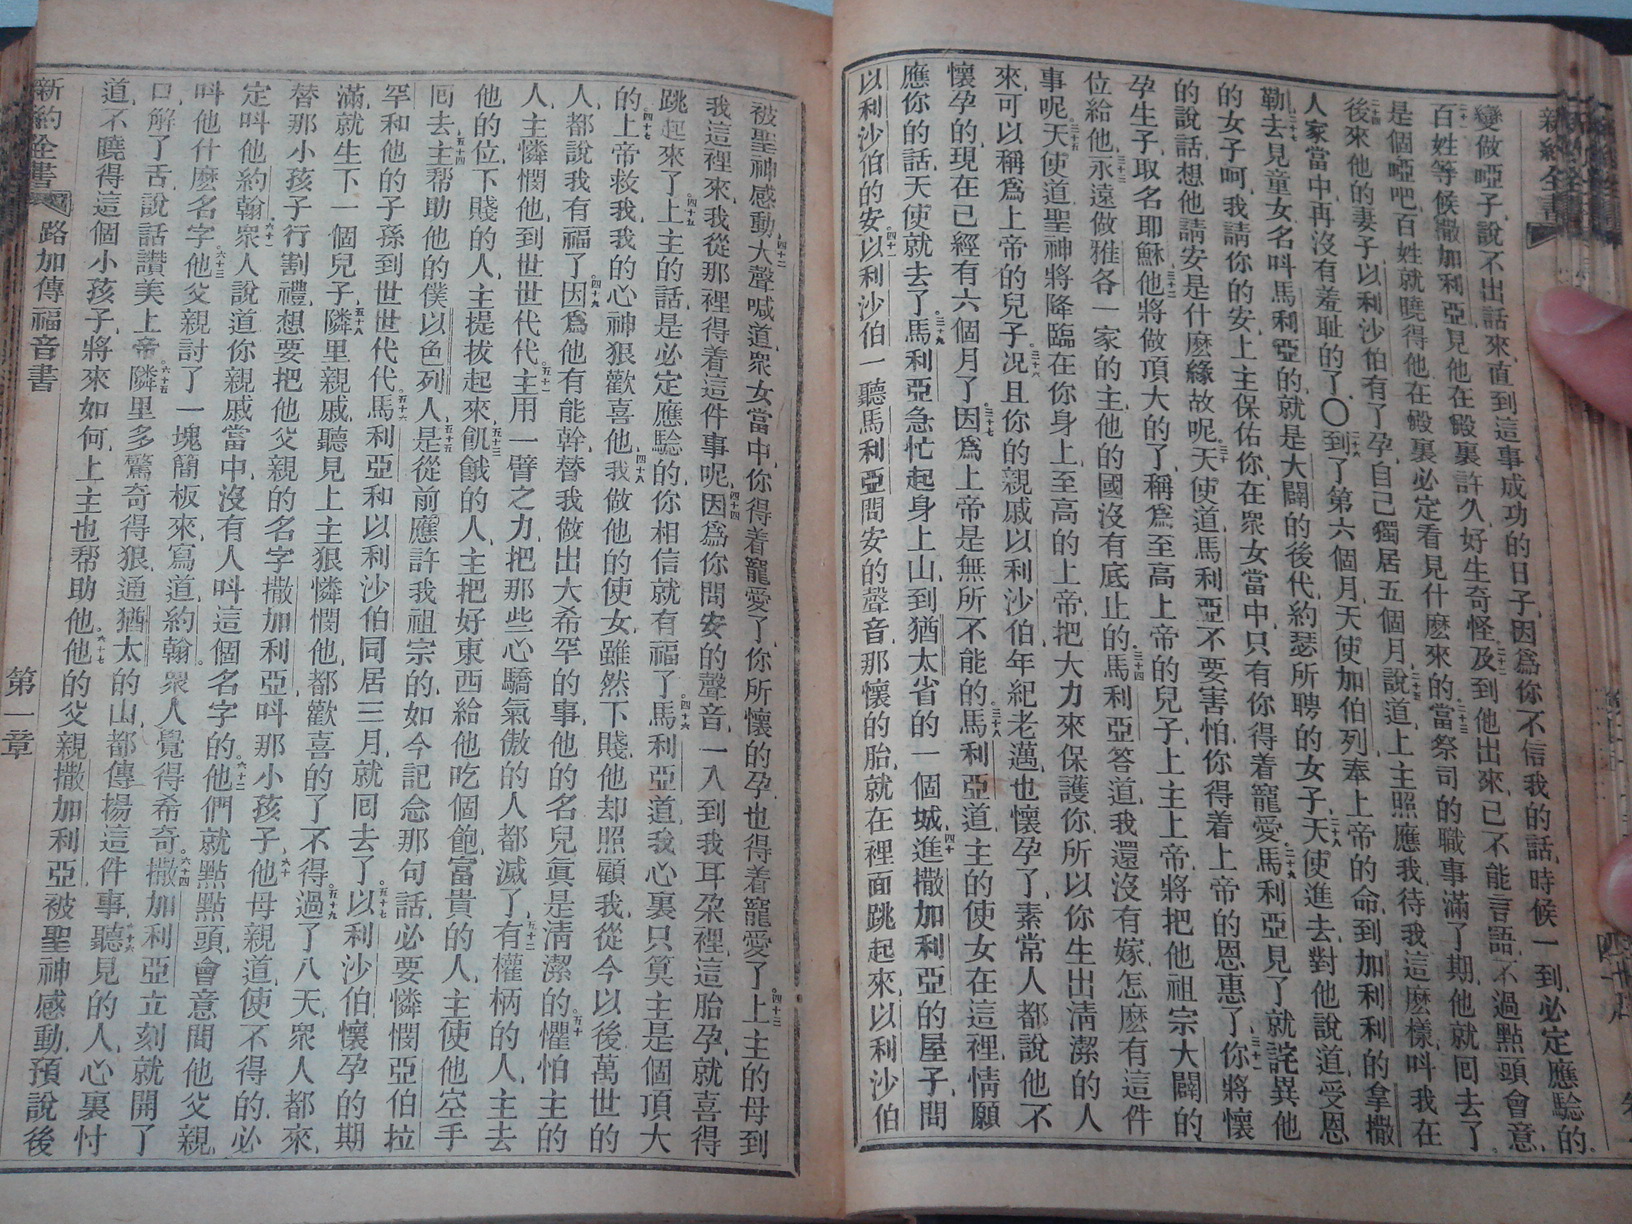 變做啞子、說不出話來、直到這事成功的日子、因爲你不信我的話、時候一到、必定應驗的、
二十一百姓等候撒加利亞、見他在殿裏許久、好生奇怪、二十二及到他出來、已不能言語、不過點頭會意、
是個啞吧、百姓就曉得他在殿裏必定看見什麽來的、二十三當祭司的職事滿了期、他就囘去了。
二十四後來他的妻子以利沙伯有了孕、自己獨居五個月、二十五說道、上主照應我、待我這麽樣、呌我在
人家當中、再沒有羞耻的了、〇二十六到了第六個月、天使加伯列奉上帝的命、到加利利的拿撒
勒去、二十七見童女、名呌馬利亞的、就是大闢的後代、約瑟所聘的女子、二十八天使進去、對他說道、受恩
的女子呵、我請你的安、上主保佑你、在眾女當中、只有你得着寵愛、二十九馬利亞見了、就詫異他
的說話、想他請安是什麽緣故呢、三十天使道、馬利亞不要害怕、你得着上帝的恩惠了、三十一你將懷
孕生子、取名耶穌、三十二他將做頂大的了、稱爲至高上帝的兒子、上主上帝、將把他祖宗大闢的
位給他、三十三永遠做雅各一家的主、他的國沒有底止的、三十四馬利亞答道、我還沒有嫁、怎麽有這件
事呢、三十五天使道、聖神將降臨在你身上、至高的上帝、把大力來保護你、所以你生出淸潔的人
來、可以稱爲上帝的兒子、三十六况且你的親戚以利沙伯、年紀老邁、也懷孕了、素常人都說他不
懷孕的、現在已經有六個月了、三十七因爲上帝是無所不能的、三十八馬利亞道、主的使女在這裡、情願
應你的話、天使就去了、三十九馬利亞急忙起身上山、到猶太省的一個城、四十進撒加利亞的屋子、問
以利沙伯的安、四十一以利沙伯一聽馬利亞問安的聲音、那懷的胎、就在裡面跳起來、以利沙伯
被聖神感動、四十二大聲喊道、眾女當中、你得着寵愛了、你所懷的孕、也得着寵愛了、四十三上主的母到
我這裡來、我從那裡得着這件事呢、四十四因爲你問安的聲音、一入到我耳朶裡、這胎孕就喜得
跳起來了、四十五上主的話、是必定應驗的、你相信就有福了、四十六馬利亞道、我心裏只算主是個頂大
的、四十七上帝救我、我的心神狠歡喜他、四十八我做他的使女、雖然下賤、他却照顧我、從今以後、萬世的
人、都說我有福了、四十九因爲他有能幹、替我做出大希罕的事、他的名兒眞是淸潔的、五十懼怕主的
人、主憐憫他、到世世代代。五十一主用一臂之力、把那些心驕氣傲的人都滅了、五十二有權柄的人、主去
他的位、下賤的人、主提拔起來、五十三飢餓的人、主把好東西給他吃個飽、富貴的人、主使他空手
囘去、五十四主帮助他的僕以色列人、五十五是從前應許我祖宗的、如今記念那句話、必要憐憫亞伯拉
罕、和他的子孫、到世世代代。五十六馬利亞和以利沙伯同居三月、就囘去了。五十七以利沙伯懷孕的期
滿、就生下一個兒子、五十八隣里親戚、聽見上主狠憐憫他、都歡喜的了不得、五十九過了八天、眾人都來、
替那小孩子行割禮、想要把他父親的名字撒加利亞、呌那小孩子、六十他母親道、使不得的、必
定呌他約翰、六十一眾人說道、你親戚當中、沒有人呌這個名字的、六十二他們就點點頭、會意問他父親、
呌他什麽名字、六十三他父親討了一塊簡板來、寫道、約翰。眾人覺得希奇、六十四撒加利亞立刻就開了
口、解了舌、說話讚美上帝、六十五隣里多驚奇得狠、通猶太的山、都傳揚這件事、六十六聽見的人、心裏忖
道、不曉得這個小孩子、將來如何、上主也帮助他。六十七他的父親撒加利亞、被聖神感動、預說後
新約全書 路加傳福音書 第一章